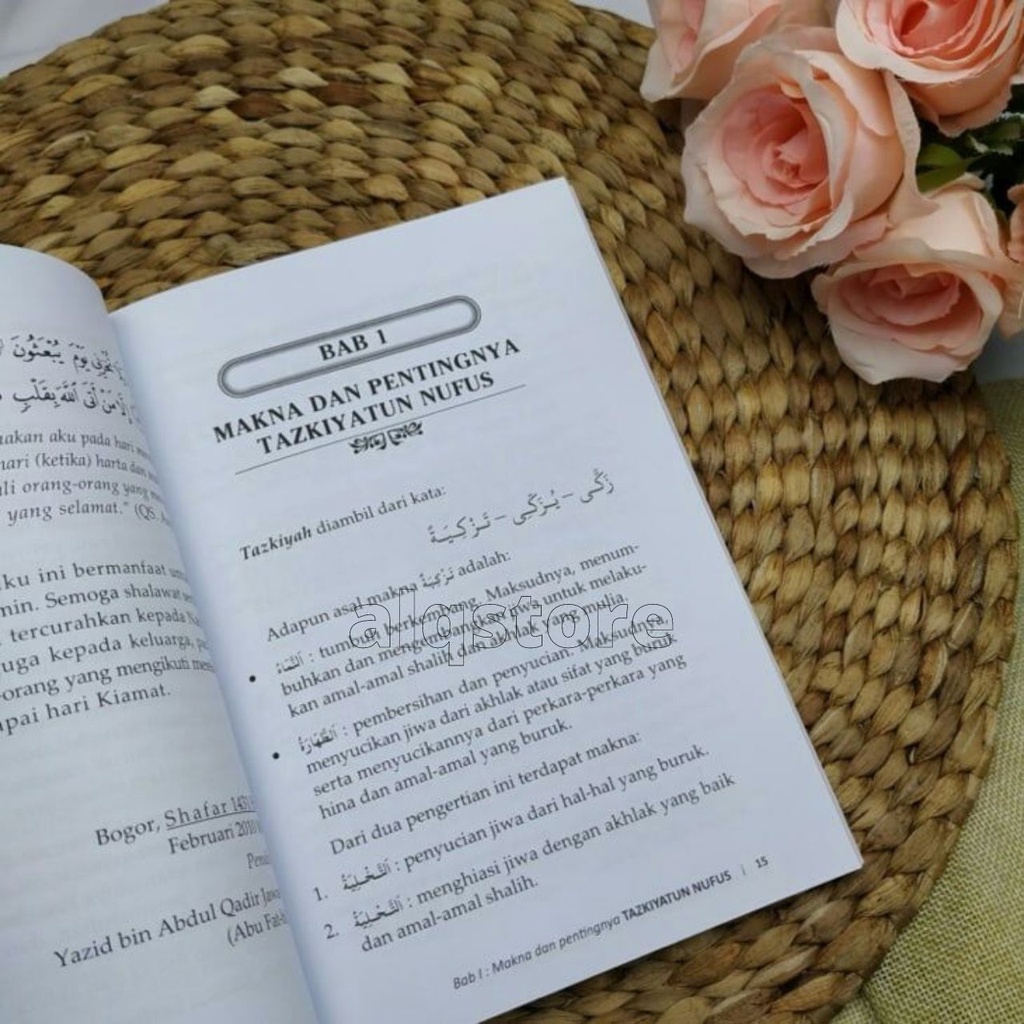 يَوْمَ يُبْعَثُونَ
إِلَّا مَنْ أَتَى اللَّهَ بِقَلْبٍ
aku pada hari
hari (ketika) harta dan
orang-orang yang
yang selamat." (QS.
ini bermanfaat
Semoga shalawat
tercurahkan kepada
juga kepada keluarga,
yang mengikuti
hari Kiamat.
Bogor, Shafar
Februari 2010
Yazid bin Abdul Qadir Jawas
(Abu
BAB 1
MAKNA DAN PENTINGNYA
TAZKIYATUN NUFUS
Tazkiyah diambil dari kata:
زَكَّى – يُزَكِّى – تَزْكِيَةٌ
Adapun asal makna تَزْكِيَةٌ adalah:
• اَلنَّمَاءُ : tumbuh berkembang. Maksudnya, menum-
buhkan dan mengembangkan jiwa untuk melaku-
kan amal-amal shalih dan akhlak yang mulia.
• اَلطَّهَارَةُ : pembersihan dan penyucian. Maksudnya,
menyucikan jiwa dari akhlak atau sifat yang buruk
serta menyucikannya dari perkara-perkara yang
hina dan amal-amal yang buruk.
Dari dua pengertian ini terdapat makna:
1. اَلتَّخْلِيَةُ : penyucian jiwa dari hal-hal yang buruk.
2. اَلتَّحْلِيَةُ : menghiasi jiwa dengan akhlak yang baik
dan amal-amal shalih.
Bab I : Makna dan pentingnya TAZKIYATUN NUFUS | 15
alqstore